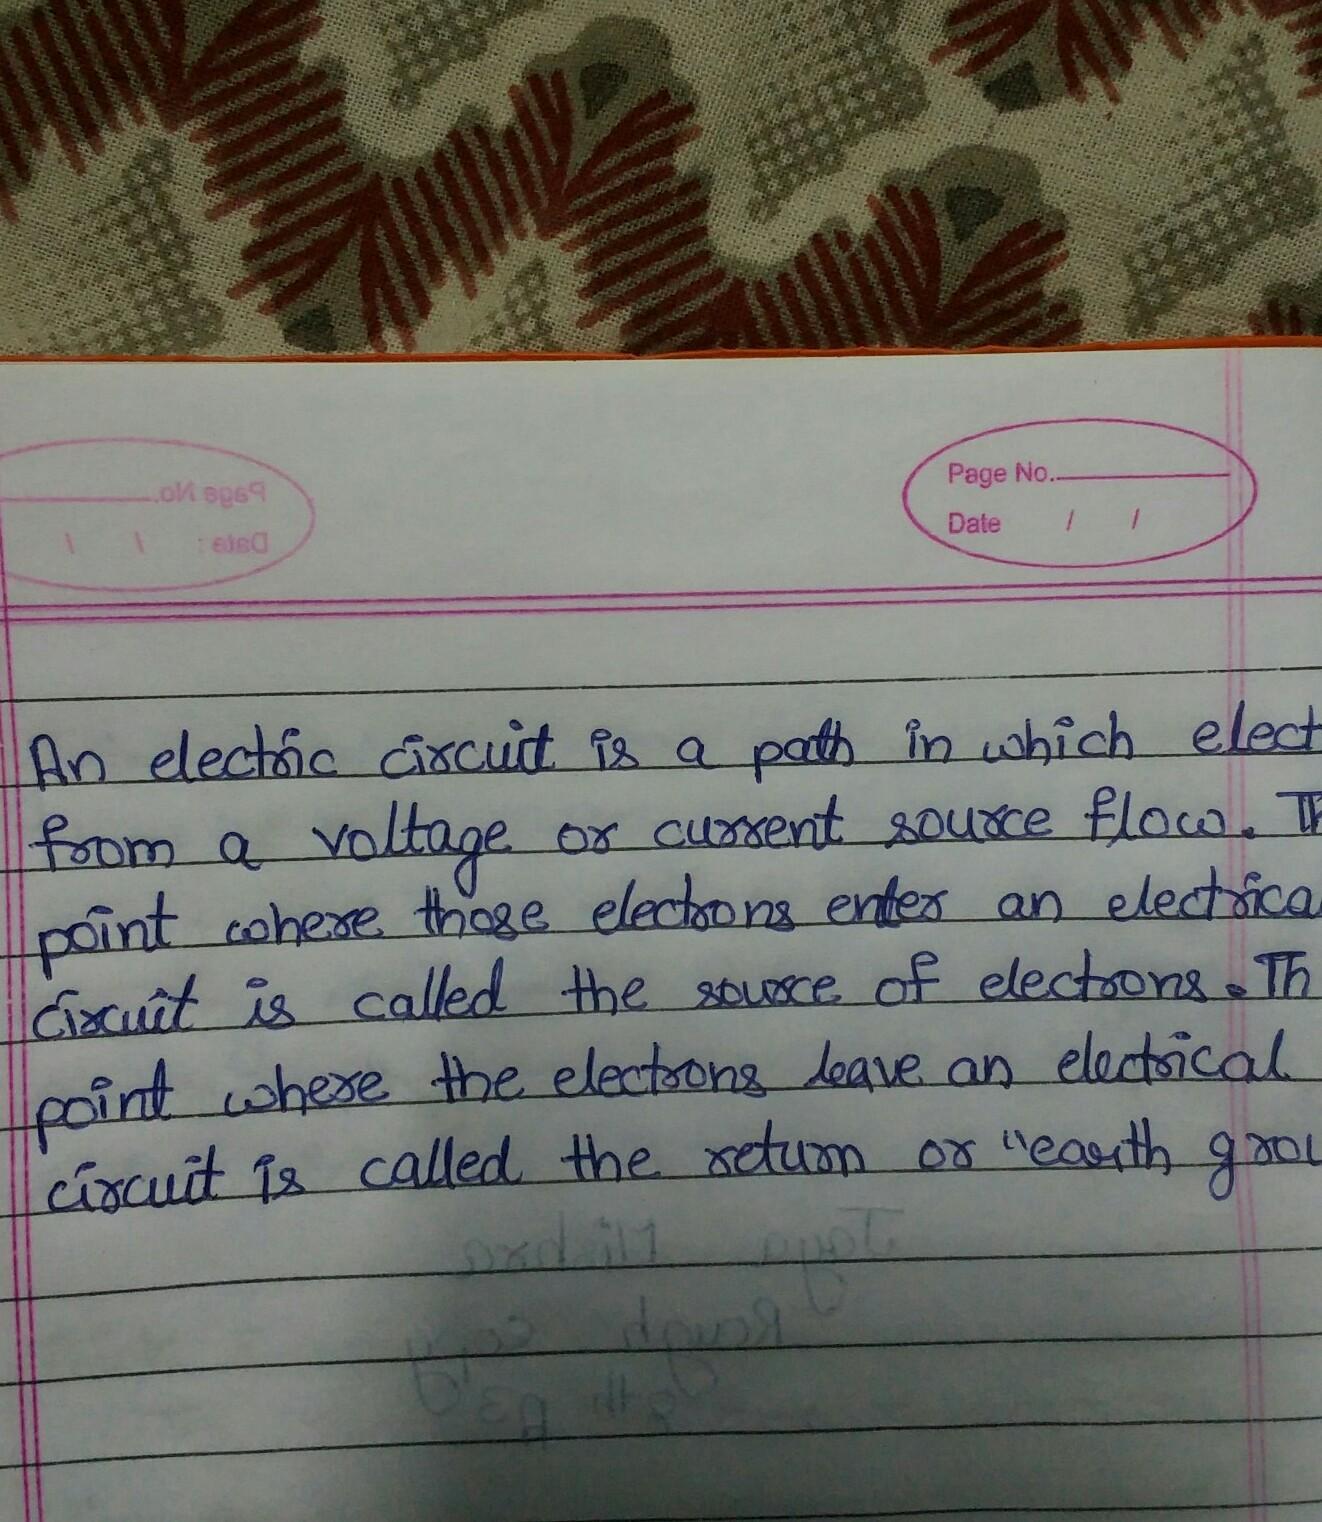 Page No.
Date / /
An electric circuit is a path in which elect
from a voltage or current source flow. Th
point where those electrons enter an electrica
circuit is called the source of electrons. Th
point where the electrons leave an electrical
circuit is called the return or "earth grou